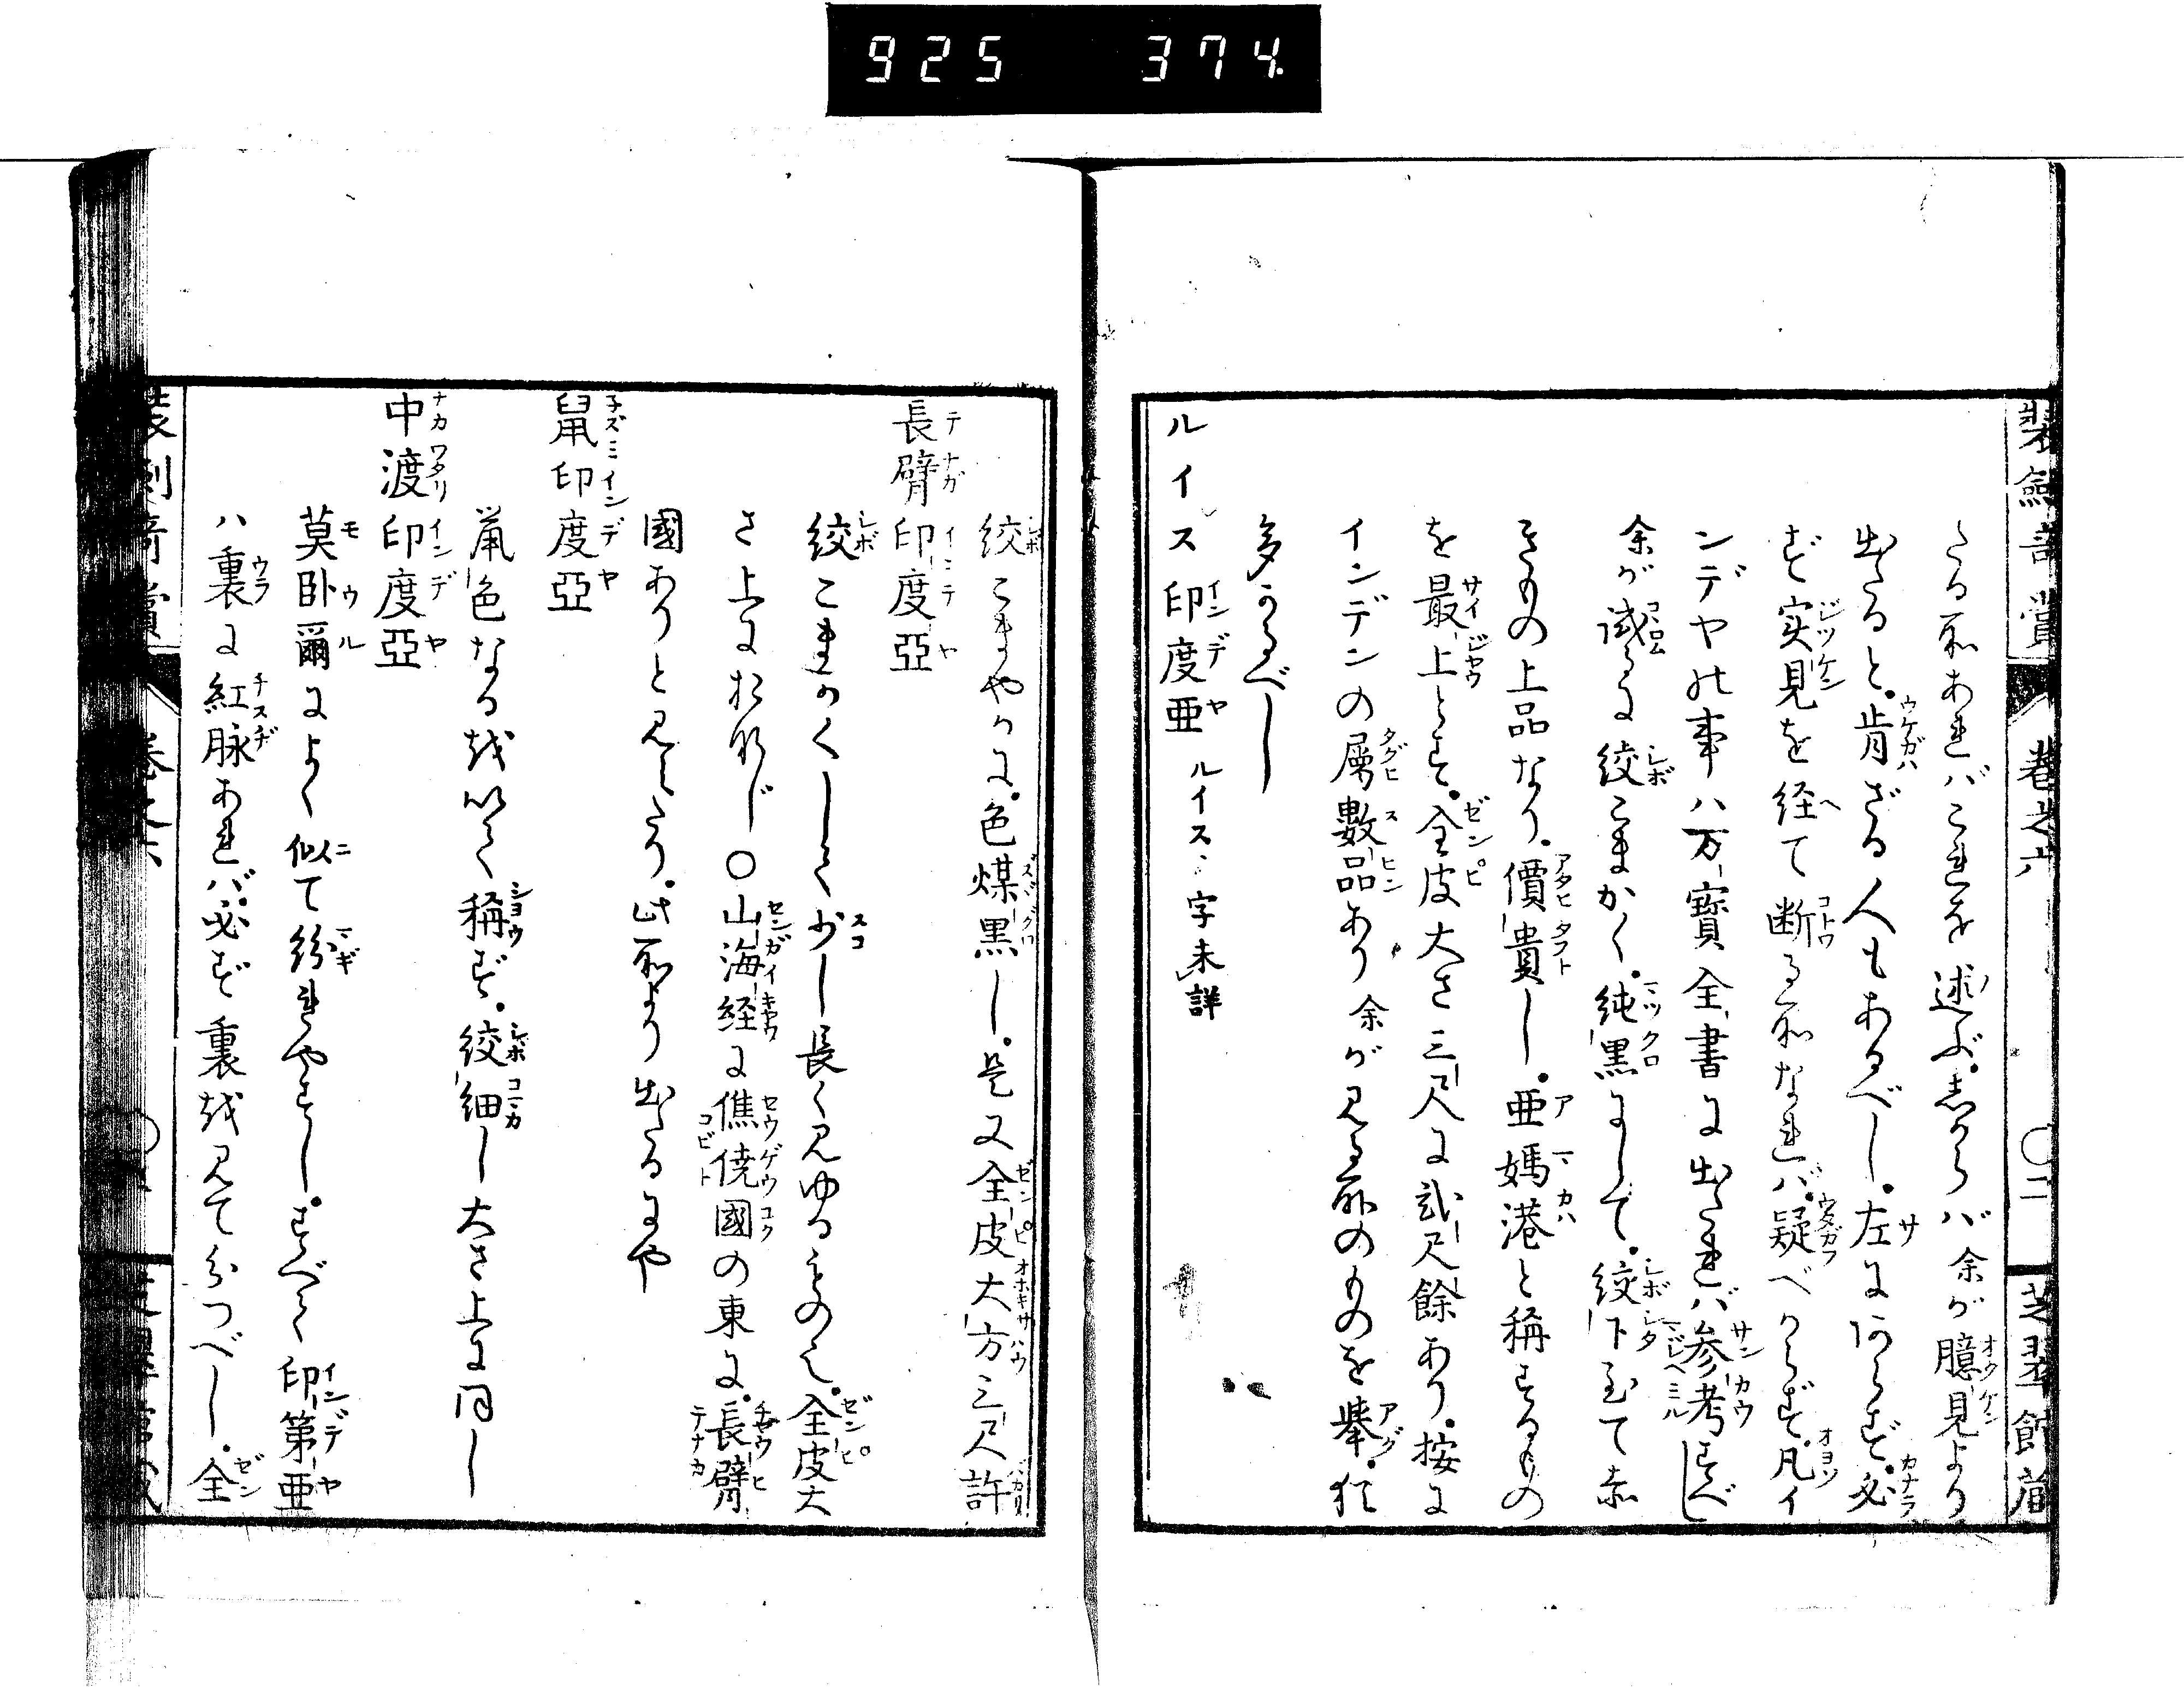 925 374
装劔奇賞 巻之六 〇二 芝翠館蔵
たる所あれバこれを述ぶ。志からバ余が臆見より
出たると。肯ざる人もあるべし。左にあらず。必
ず実見を経て断る所なれバ。疑べからず。凡イ
ンデヤの事ハ万寳全書に出たれバ参考すべし
余が試るに絞こまかく。純黒にして。絞下至て赤
きもの上品なり。價貴し。亜媽港と稱するもの
を最上とす。全皮大さ三尺に弐尺餘あり。按に
インデンの属數品あり余が見る所のものを擧。猶
多かるべし
ルイス印度亜 ルイス字未詳
絞こまやかに。色煤黒し。是又全皮大方三尺許
長臂印度亞
絞こまかくして少し長く見ゆるもの也。全皮大
さ上におなじ〇山海経に僬僥國の東に。長臂
國ありと見へたり。此所より出たるにや
鼠印度亞
鼠色なるを以て稱ず。絞細し大さ上に同し
中渡印度亞
莫卧爾によく似て紛れやすし。すべて印第亜
ハ裏に紅脉あれバ。必ず裏を見て分つべし。全